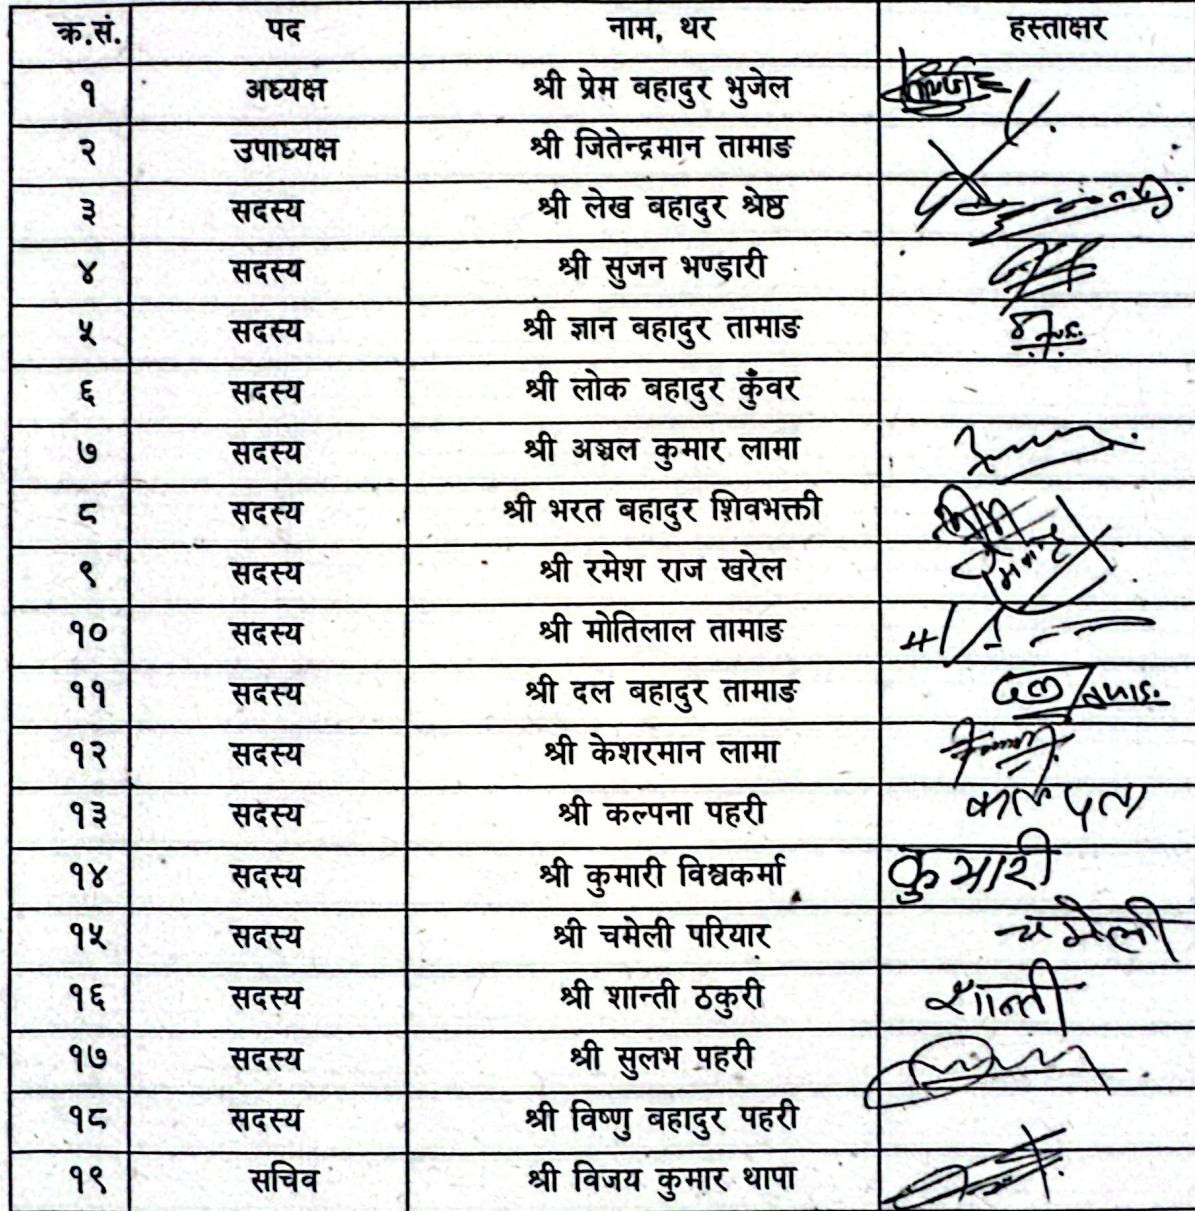 क्र.सं. पद नाम, थर हस्ताक्षर
१ अध्यक्ष श्री प्रेम बहादुर भुजेल
२ उपाध्यक्ष श्री जितेन्द्रमान तामाङ
३ सदस्य श्री लेख बहादुर श्रेष्ठ
४ सदस्य श्री सुजन भण्डारी
५ सदस्य श्री ज्ञान बहादुर तामाङ
६ सदस्य श्री लोक बहादुर कुँवर
७ सदस्य श्री अञ्चल कुमार लामा
८ सदस्य श्री भरत बहादुर शिवभक्ती
९ सदस्य श्री रमेश राज खरेल
१० सदस्य श्री मोतिलाल तामाङ
११ सदस्य श्री दल बहादुर तामाङ दल तामाङ
१२ सदस्य श्री केशरमान लामा
१३ सदस्य श्री कल्पना पहरी
१४ सदस्य श्री कुमारी विश्वकर्मा कुमारी
१५ सदस्य श्री चमेली परियार चमेली
१६ सदस्य श्री शान्ती ठकुरी शान्ती
१७ सदस्य श्री सुलभ पहरी
१८ सदस्य श्री विष्णु बहादुर पहरी
१९ सचिव श्री विजय कुमार थापा